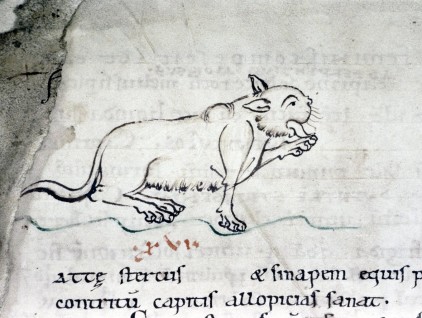 XVII
attę stercus & sinapem equis p
contritū capitis allopicias sanat.